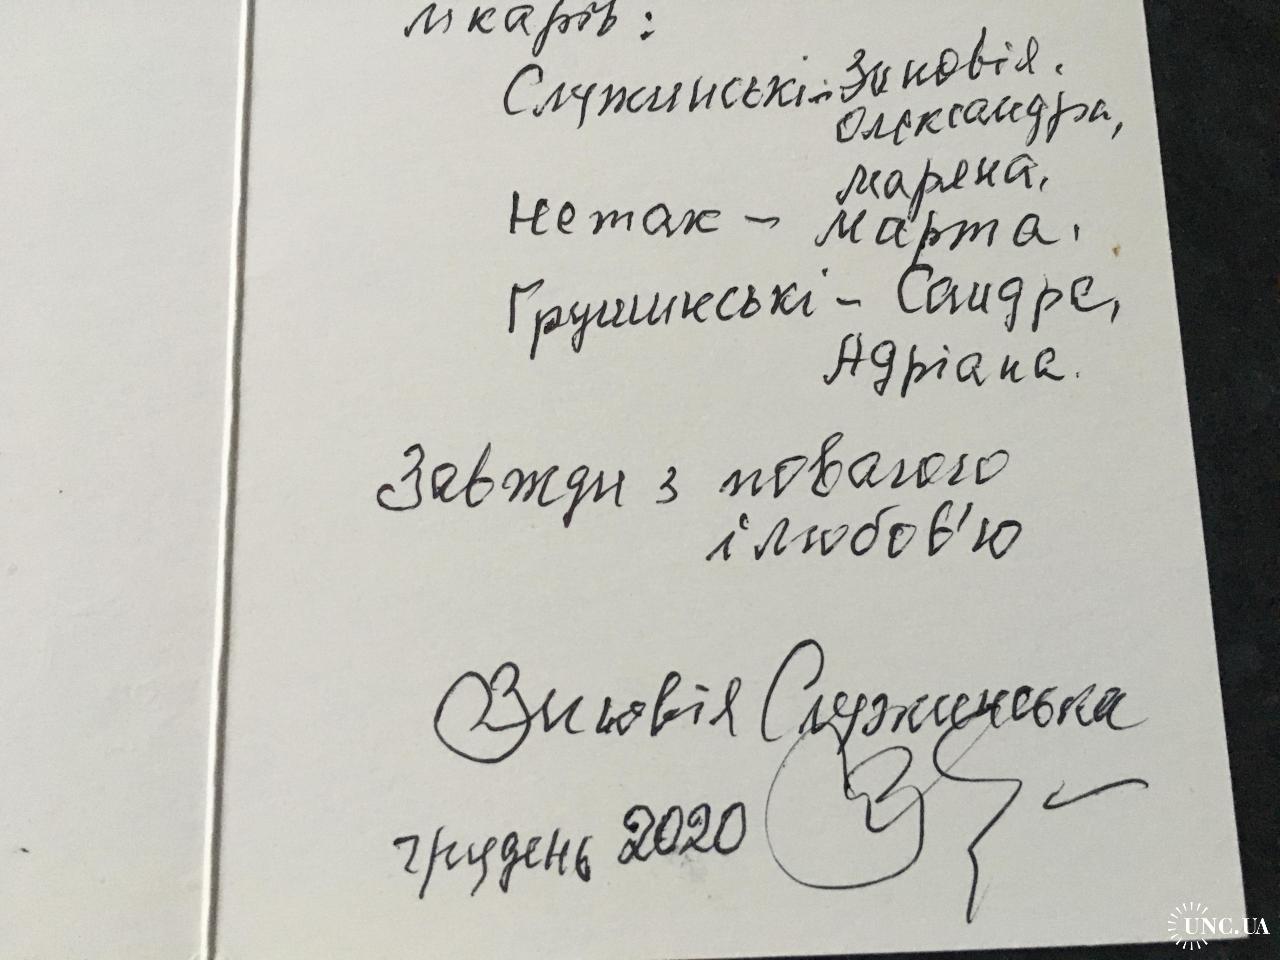 лікарів:
Служинські - Зиновія.
Олександра,
Маряна,
Нетак - Марта.
Грушинські - Сандра,
Адріана.
Завжди з повагою
і любов'ю
Зиновія Служинська
грудень 2020
UNC.UA